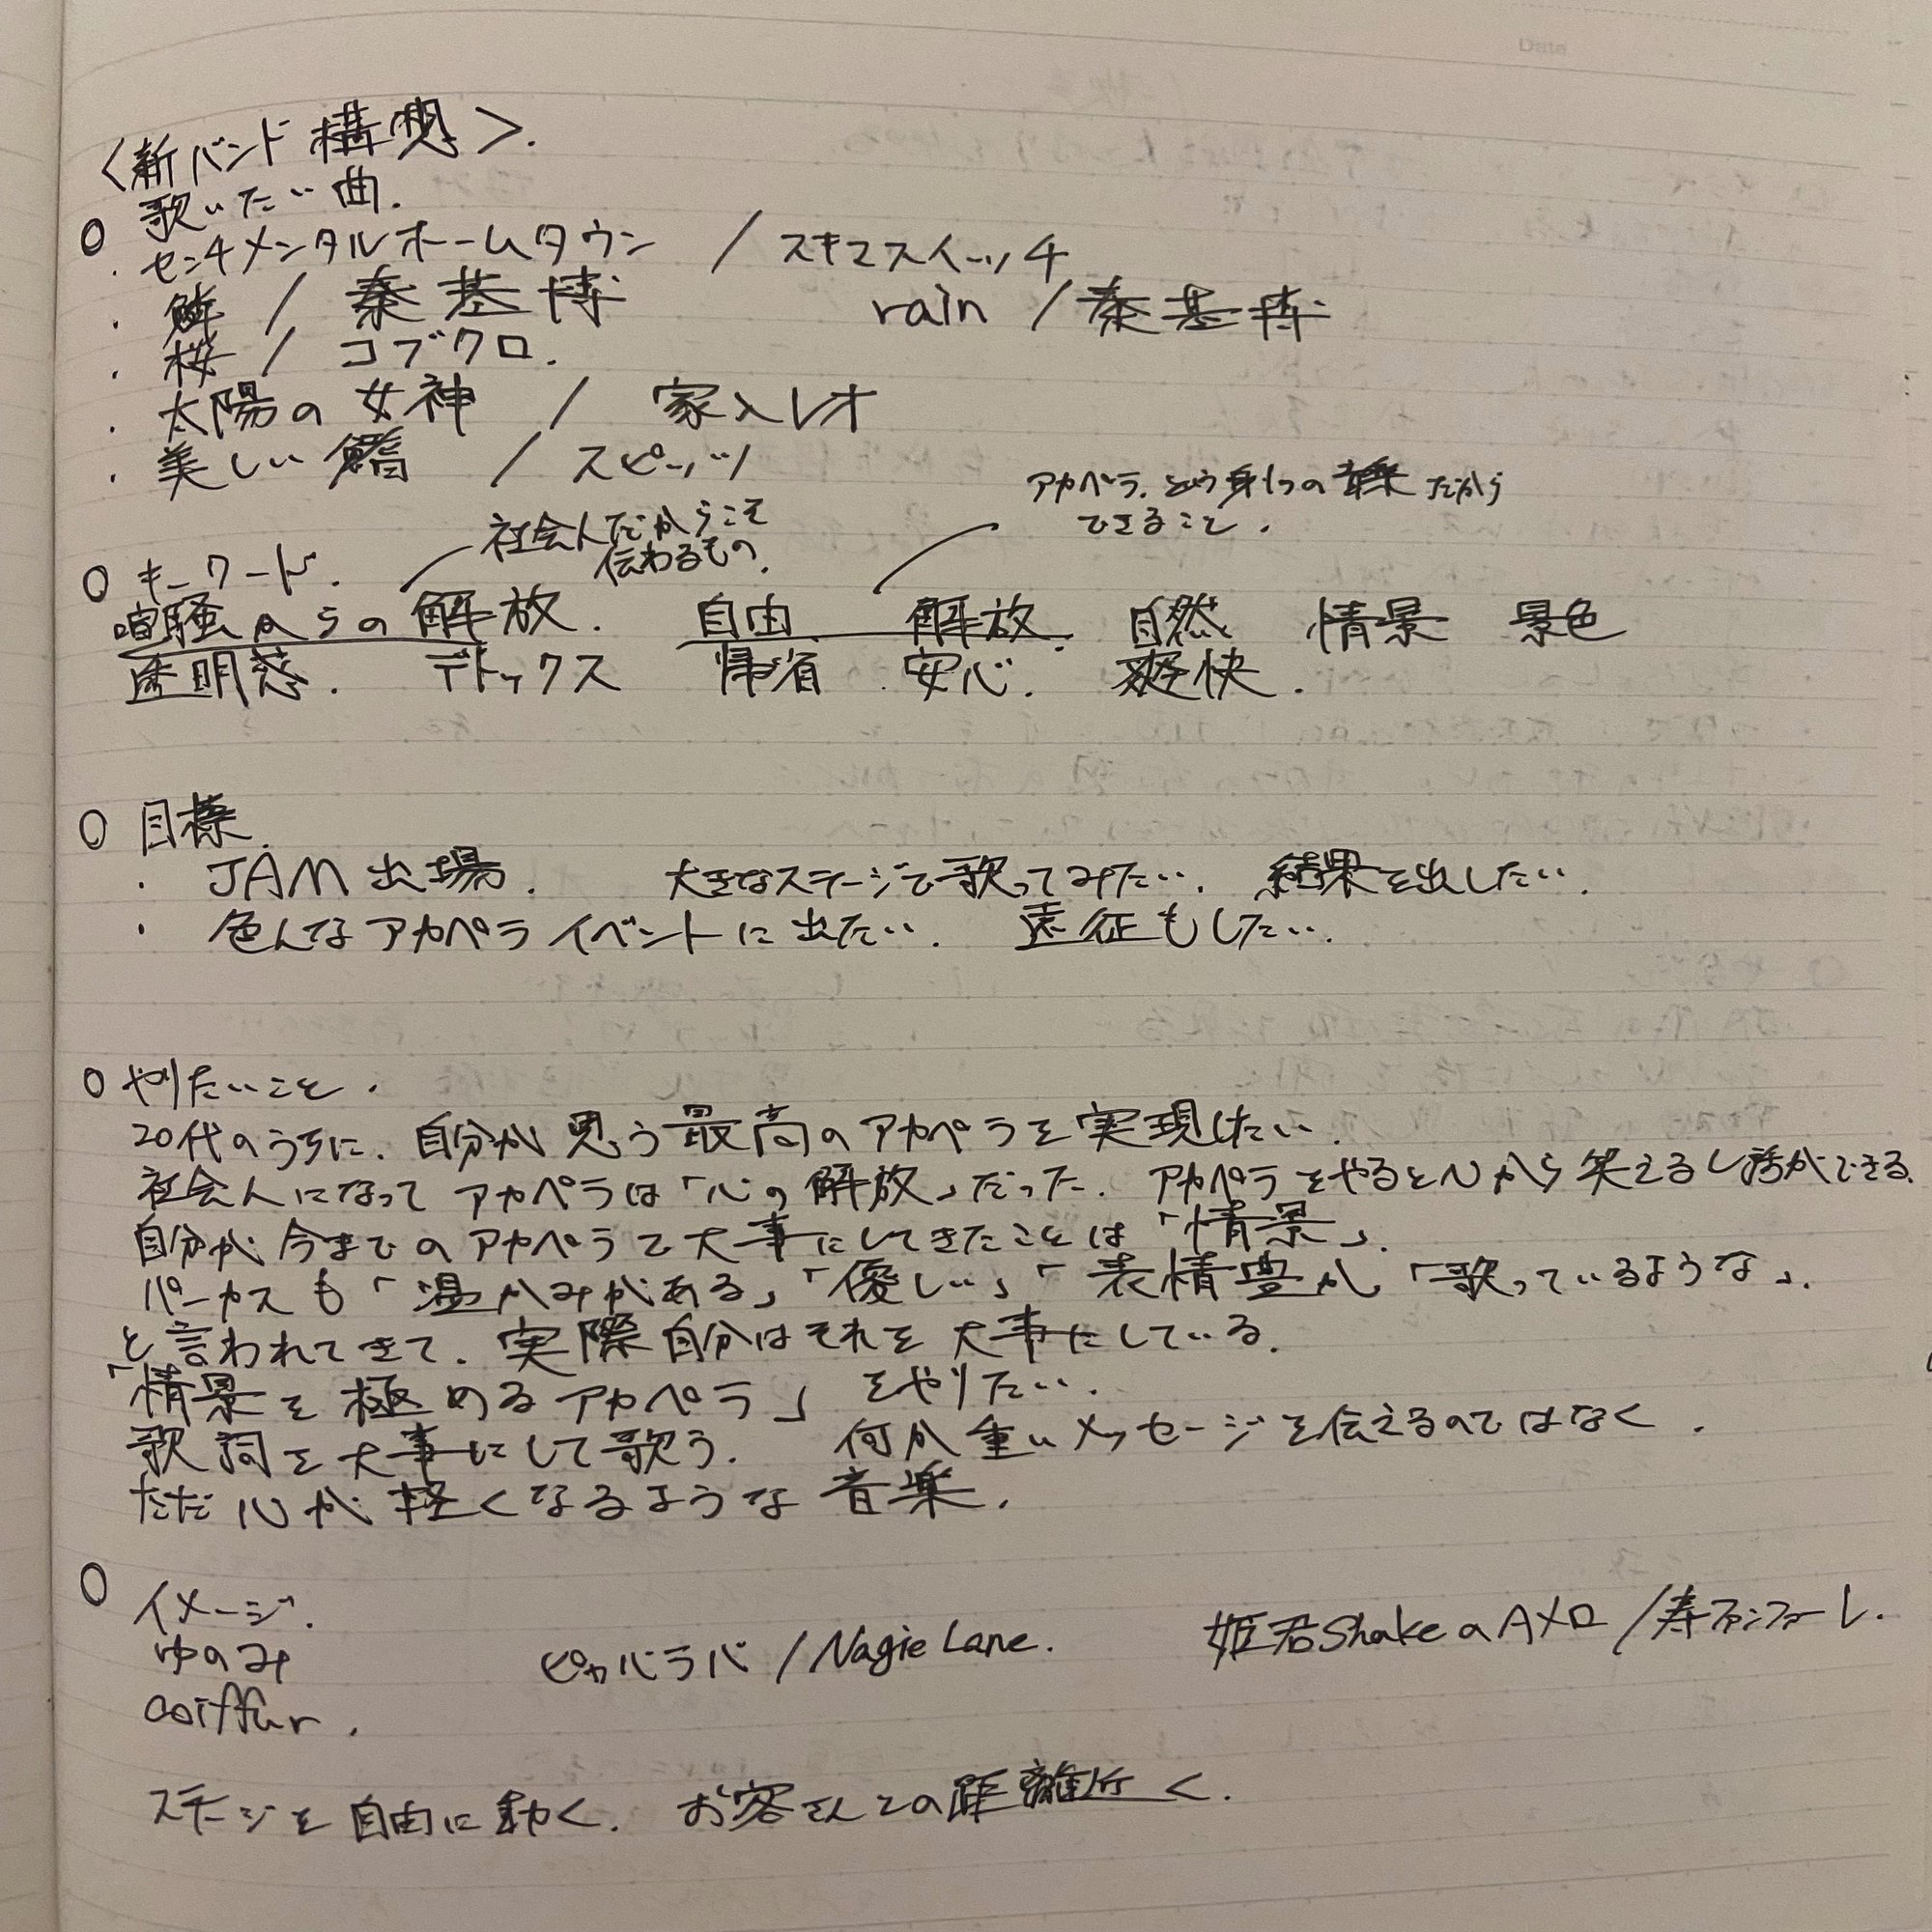 Date
<新バンド構想>.
○ 歌いたい曲.
・センチメンタルホームタウン / スキマスイッチ
・鱗 / 秦基博 rain / 秦基博
・桜 / コブクロ.
・太陽の女神 / 家入レオ
・美しい鰭 / スピッツ
アカペラ.という身1つの音楽だから
できること.
社会人だからこそ
伝わるもの.
○ キーワード.
喧騒からの解放. 自由. 解放. 自然 情景 景色
透明感. デトックス 帰省 安心. 爽快.
○ 目標.
・JAM出場. 大きなステージで歌ってみたい. 結果を出したい.
・色んなアカペライベントに出たい. 遠征もしたい.
○ やりたいこと.
20代のうちに.自分が思う最高のアカペラを実現したい.
社会人になってアカペラは「心の解放」だった. アカペラをやると心から笑えるし話ができる.
自分が今までのアカペラで大事にしてきたことは「情景」.
パーカスも「温かみがある」「優しい」「表情豊か」「歌っているような」.
と言われてきて.実際自分はそれを大事にしている.
「情景を極めるアカペラ」をやりたい.
歌詞を大事にして歌う. 何か重いメッセージを伝えるのではなく.
ただ心が軽くなるような音楽.
○ イメージ.
ゆのみ ピカバラバ / Nagie Lane. 姫君ShakeのAメロ / 寿ファンファーレ.
coiffur.
ステージを自由に動く. お客さんとの距離近く.